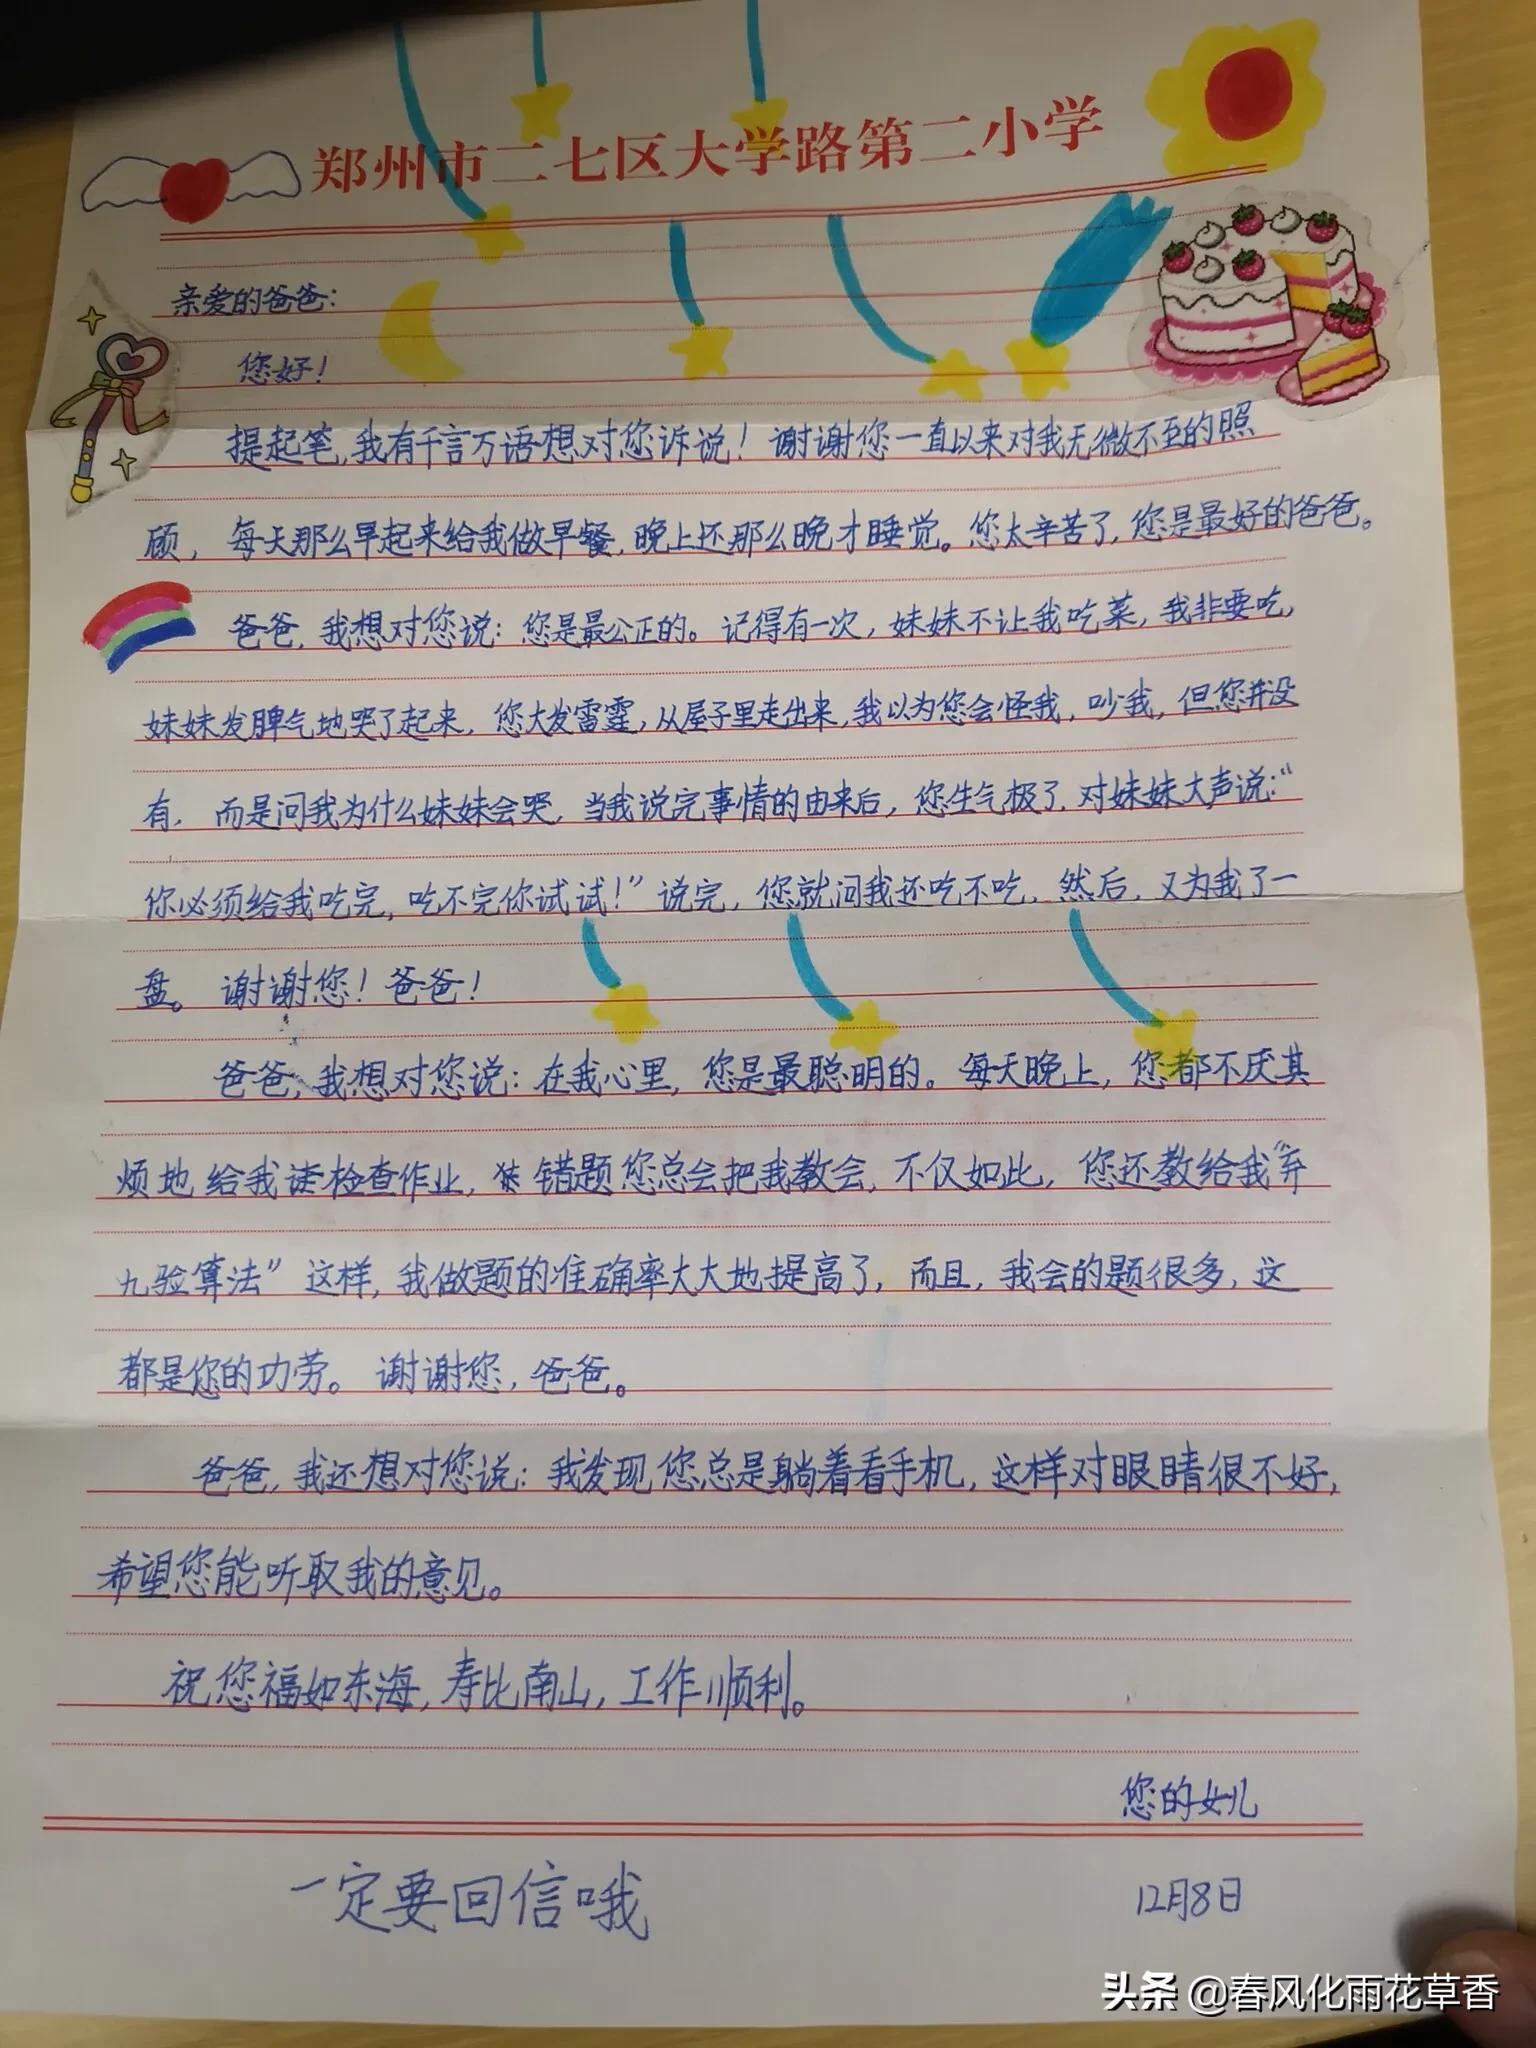 郑州市二七区大学路第二小学
亲爱的爸爸：
您好！
提起笔，我有千言万语想对您诉说！谢谢您一直以来对我无微不至的照
顾，每天那么早起来给我做早餐，晚上还那么晚才睡觉。您太辛苦了，您是最好的爸爸。
爸爸，我想对您说：您是最公正的。记得有一次，妹妹不让我吃菜，我非要吃，
妹妹发脾气地哭了起来，您大发雷霆，从屋子里走出来，我以为您会怪我，吵我，但您并没
有，而是问我为什么妹妹会哭，当我说完事情的由来后，您生气极了，对妹妹大声说：“
你必须给我吃完，吃不完你试试！”说完，您就问我还吃不吃，然后，又为我了一
盘。谢谢您！爸爸！
爸爸，我想对您说：在我心里，您是最聪明的。每天晚上，您都不厌其
烦地给我检查作业，错题您总会把我教会，不仅如此，您还教给我“弃
九验算法”这样，我做题的准确率大大地提高了，而且，我会的题很多，这
都是您的功劳。谢谢您，爸爸。
爸爸，我还想对您说：我发现您总是躺着看手机，这样对眼睛很不好，
希望您能听取我的意见。
祝您福如东海，寿比南山，工作顺利。
您的女儿
一定要回信哦
12月8日
头条 @春风化雨花草香